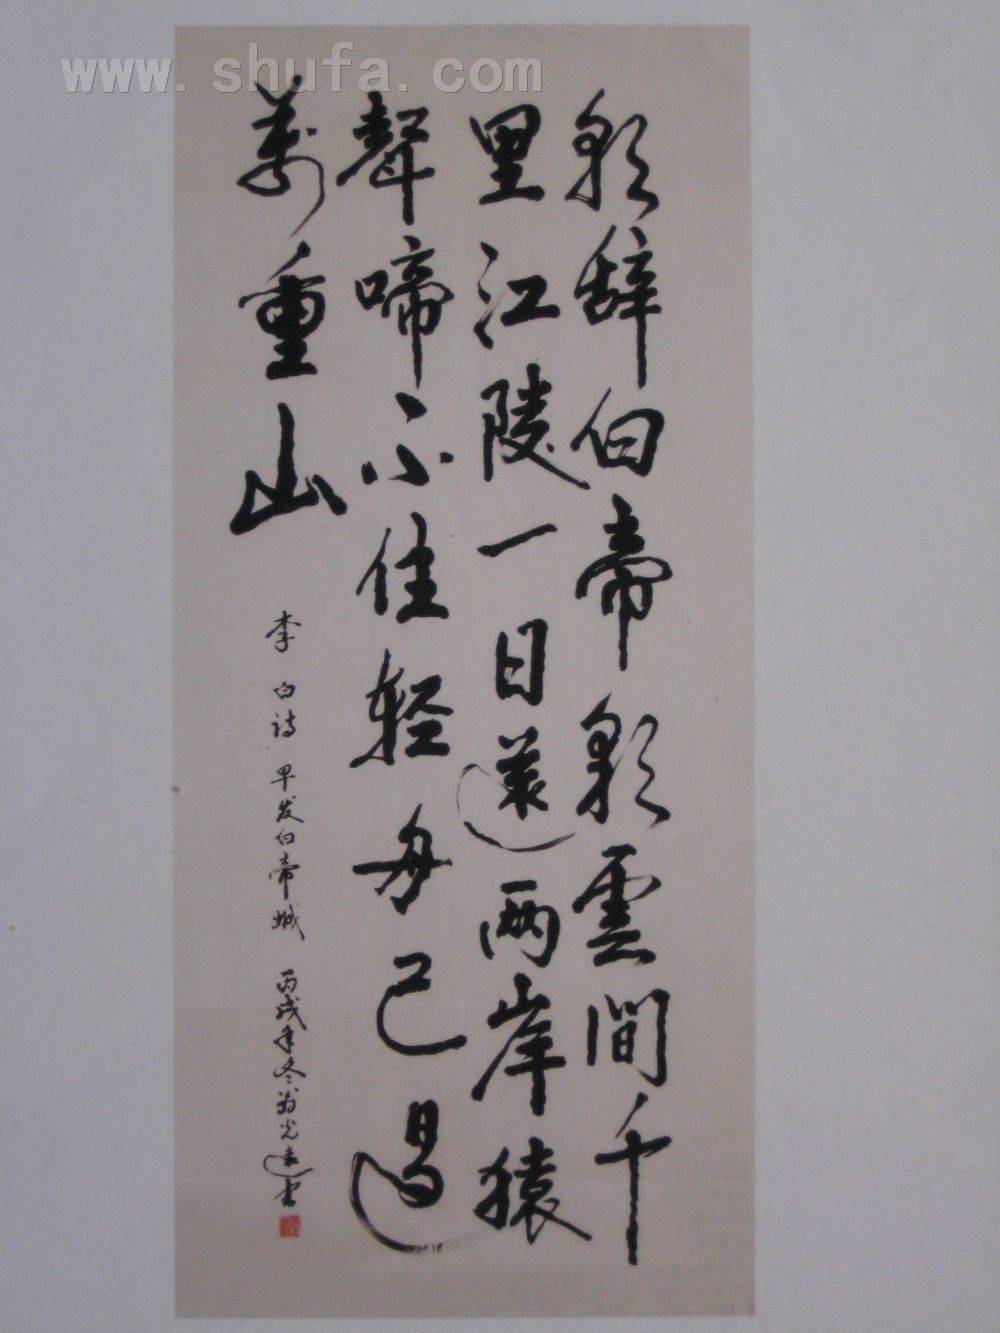 www.shufa.com
朝辞白帝彩雲間千
里江陵一日還兩岸猿
聲啼不住轻舟已過
萬重山
李白诗 早发白帝城 丙戌年冬翁光书